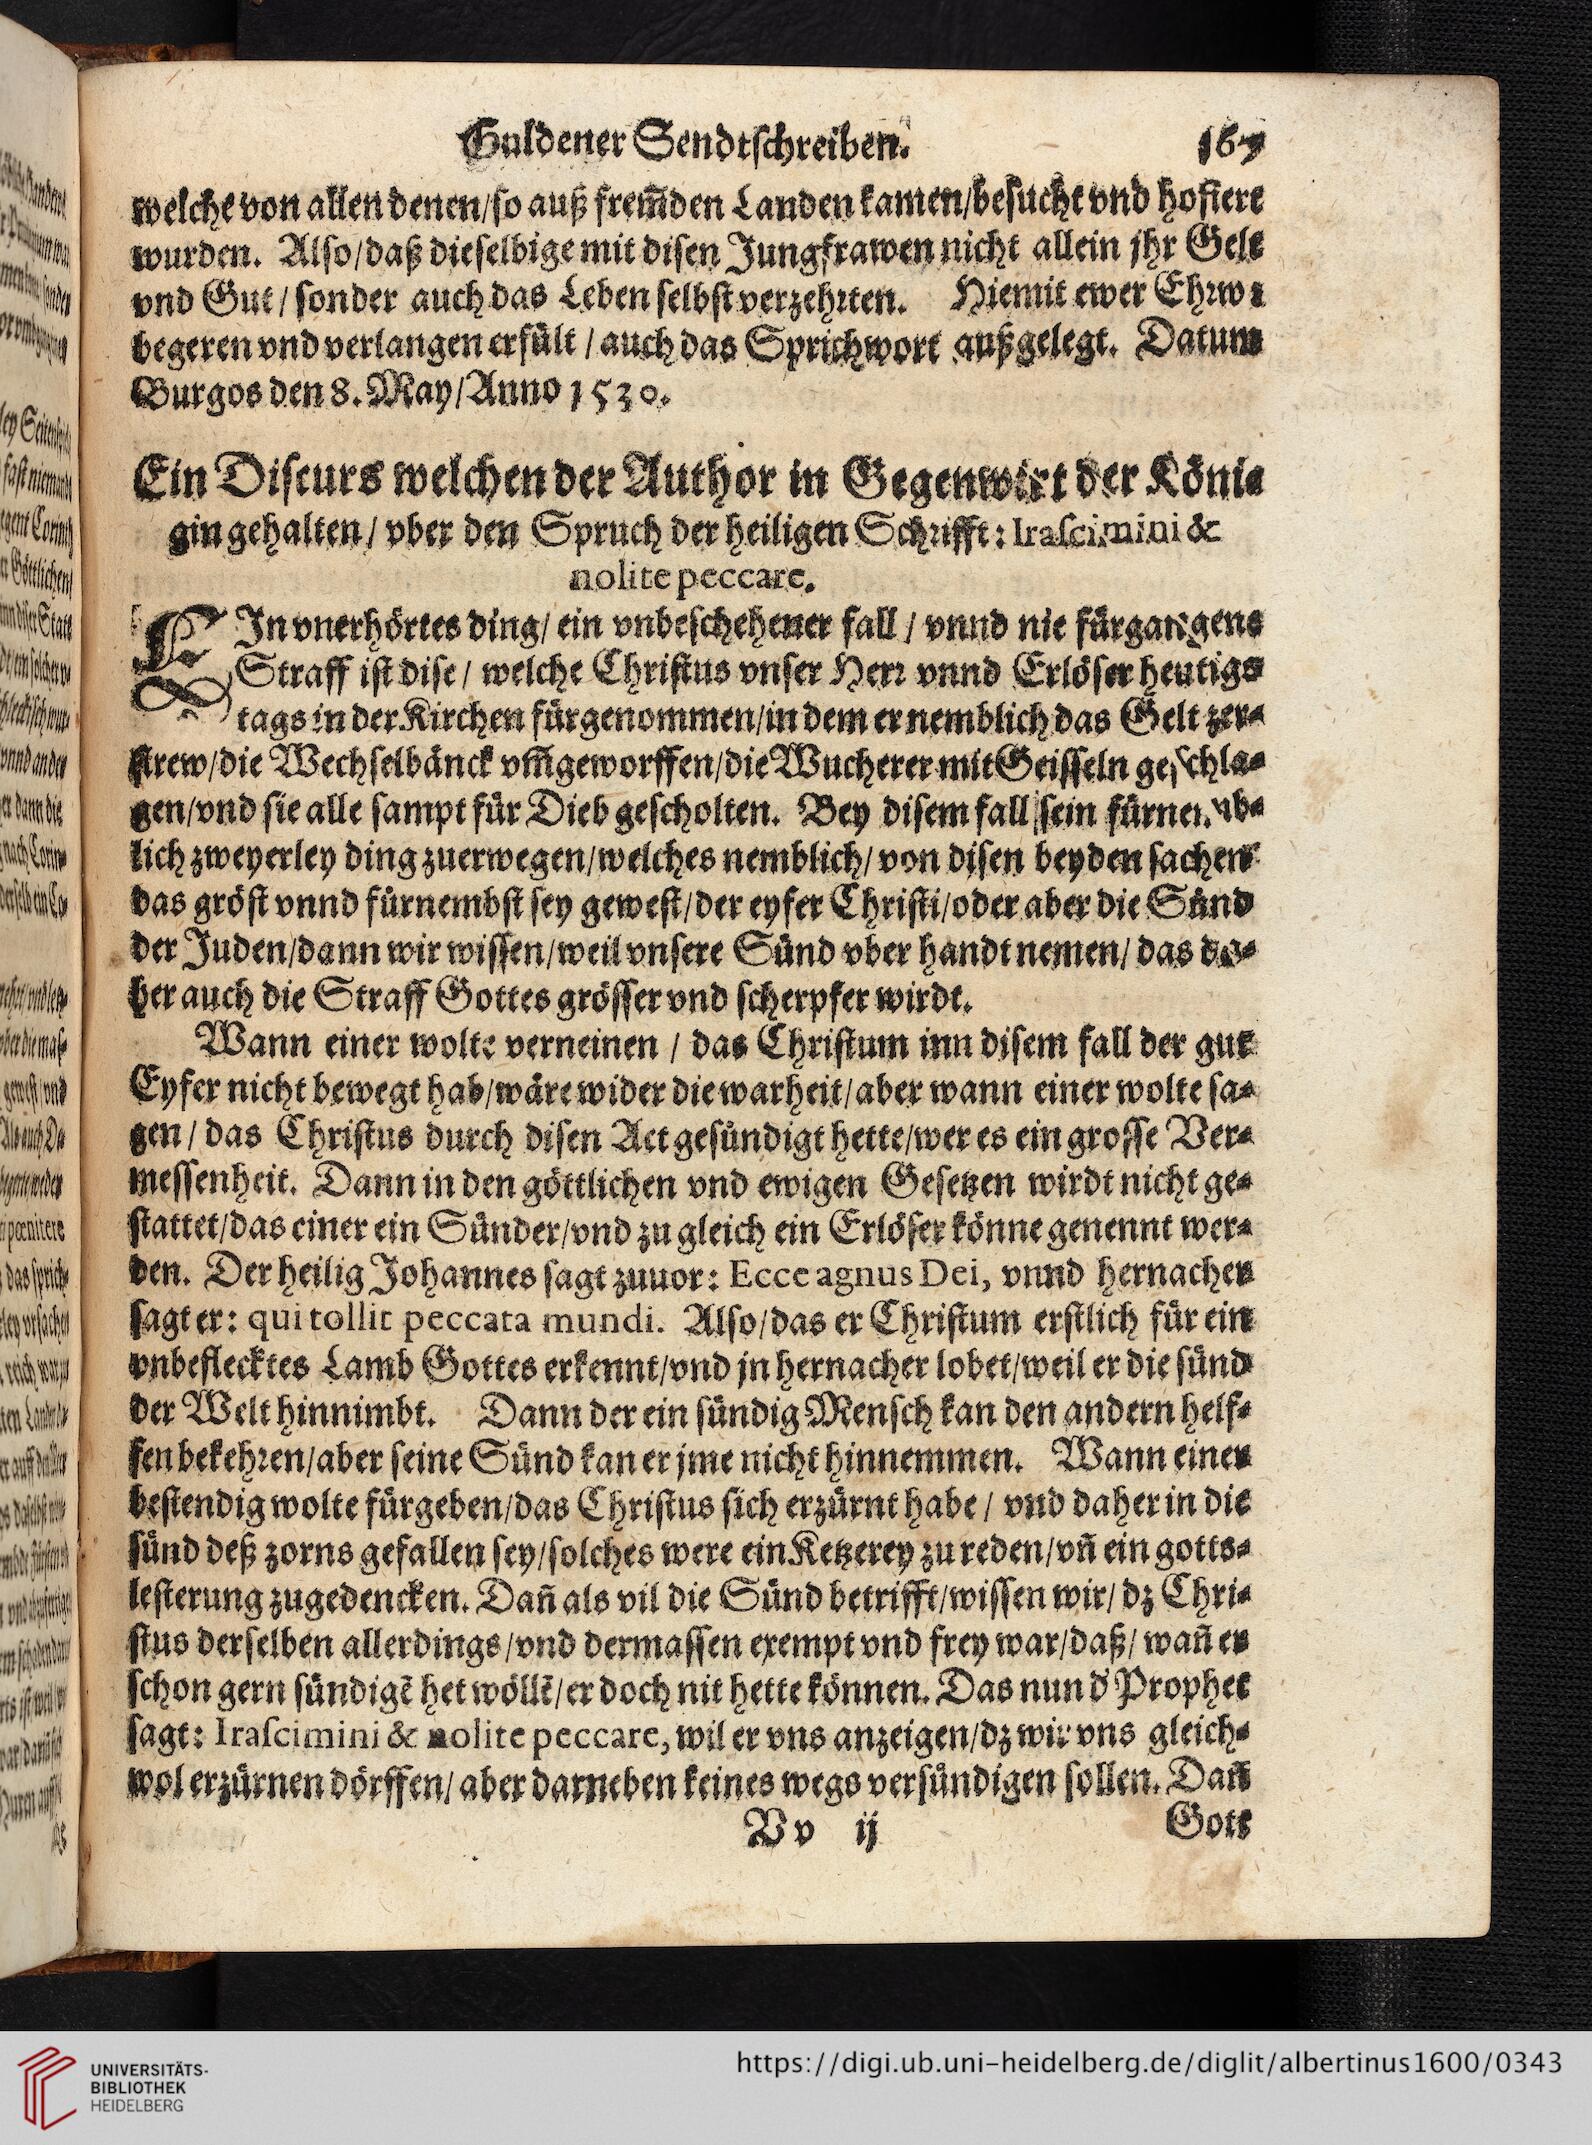 Guldener Sendtschreiben. 167
welche von allen denen/so auß frem̃den Landen kamen/besucht vnd hofiert
wurden. Also/daß dieselbige mit disen Jungfrawen nicht allein jhr Gelt
vnd Gut/sonder auch das Leben selbst verzehrten. Hiemit ewer Ehrw:
begeren vnd verlangen erfült/auch das Sprichwort außgelegt. Datum
Burgos den 8. May/Anno 1530.
Ein Discurs welchen der Author in Gegenwirt der Köni⸗
gin gehalten/vber den Spruch der heiligen Schrifft: Irascimini &
nolite peccare.
EIn vnerhörtes ding/ein vnbeschehener fall/vnnd nie fürgangene
Straff ist dise/welche Christus vnser Herr vnnd Erlöser heutigs
tags in der Kirchen fürgenommen/in dem er nemblich das Gelt zer⸗
strew/die Wechselbänck vm̃geworffen/die Wucherer mit Geisseln geschla⸗
gen/vnd sie alle sampt für Dieb gescholten. Bey disem fall sein fürnemb⸗
lich zweyerley ding zuerwegen/welches nemblich/von disen beyden sachen
das gröst vnnd fürnembst sey gewest/der eyfer Christi/oder aber die Sünd
der Juden/dann wir wissen/weil vnsere Sünd vber handt nemen/das da⸗
her auch die Straff Gottes grösser vnd scherpfer wirdt.
Wann einer wolte verneinen/das Christum inn disem fall der gut
Eyfer nicht bewegt hab/wäre wider die warheit/aber wann einer wolte sa⸗
gen/das Christus durch disen Act gesündigt hette/wer es ein grosse Ver⸗
messenheit. Dann in den göttlichen vnd ewigen Gesetzen wirdt nicht ge⸗
stattet/das einer ein Sünder/vnd zu gleich ein Erlöser könne genennt wer⸗
den. Der heilig Johannes sagt zuuor: Ecce agnus Dei, vnnd hernacher
sagt er: qui tollit peccata mundi. Also/das er Christum erstlich für ein
vnbeflecktes Lamb Gottes erkennt/vnd jn hernacher lobet/weil er die sünd
der Welt hinnimbt. Dann der ein sündig Mensch kan den andern helf⸗
fen bekehren/aber seine Sünd kan er jme nicht hinnemmen. Wann einer
bestendig wolte fürgeben/das Christus sich erzürnt habe/vnd daher in die
sünd deß zorns gefallen sey/solches were ein Ketzerey zu reden/vñ ein gotts⸗
lesterung zugedencken. Dañ als vil die Sünd betrifft/wissen wir/dz Chri⸗
stus derselben allerdings/vnd dermassen exempt vnd frey war/daß/wañ er
schon gern sündigẽ het wöllẽ/er doch nit hette können. Das nun d' Prophet
sagt: Irascimini & nolite peccare, wil er vns anzeigen/dz wir vns gleich⸗
wol erzürnen dörffen/aber darneben keines wegs versündigen sollen. Dañ
Vv ij Gott
UNIVERSITÄTS-
BIBLIOTHEK
HEIDELBERG
https://digi.ub.uni-heidelberg.de/diglit/albertinus1600/0343